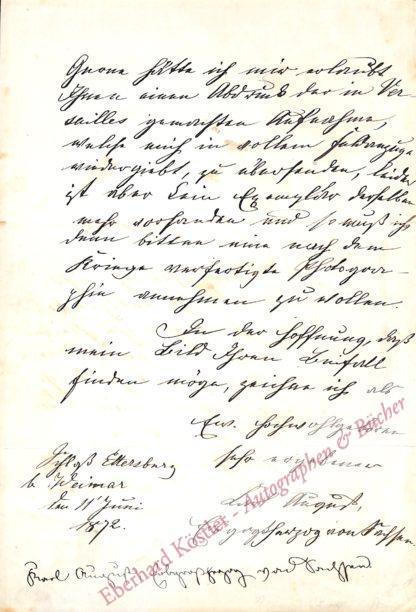 Gerne hätte ich mir erlaubt
Ihnen einen Abdruck der in Ver-
sailles gemachten Aufnahme,
welche mich in vollem
wiedergiebt, zu übersenden, leider
ist aber kein Exemplar derselben
mehr vorhanden und so muß ich
denn bitten eine nach dem
Kriege verfertigte Photogra-
phie annehmen zu wollen.
In der Hoffnung, daß
mein Bild Ihren Beifall
finden möge, zeichne ich als
Ew. Hochwohlgeboren
sehr ergebener
Schloß Ettersburg
b. Weimar
den 11 Juni
1872.
Carl August,
Erbgroßherzog von Sachsen
Karl August Erbgroßherzog von Sachsen
Eberhard Köstler - Autographen & Bücher